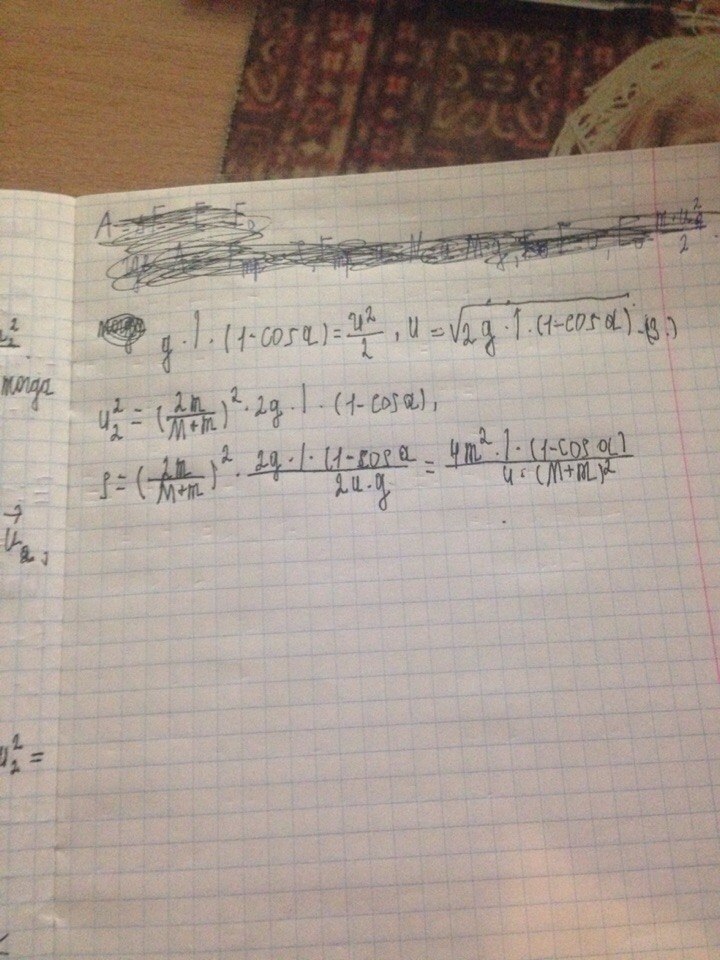 u₂²
тогда
g · l · (1-cos α) = u²/2, u = √(2g · l · (1-cos α)) - (3.)
u₂² = (2m/(M+m))² · 2g · l · (1-cos α),
S = (2m/(M+m))² · (2g · l · (1-cos α)/(2μ · g) = (4m² · l · (1-cos α))/(μ · (M+m)²)
u₂² =